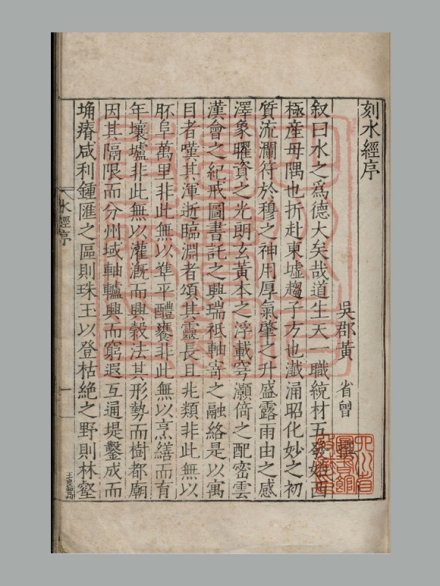 刻水經序
吳郡黃省曾
叙曰水之為德大矣哉道生天一職統材五發始西
極産毋隅也折赴東墟趨子方也濈涌昭化妙之初
質流瀾符於穆之神用厚氣肇之升盛露雨由之感
澤象曜資之光朗玄黃本之浮載穹灝倚之配密雲
漢會之紀戒圖書託之興瑞祇軸寄之融絡是以寓
目者嘆其渾逝臨淵者頌其靈長且兆類非此無以
胚阜萬里非此無以準平醴餐非此無以烹繕而育
年壤壚非此無以灌漑而興穀法其形勢而樹都廟
因其隔限而分州域軸轤興而窮遐互通堤鑿成而
埆瘠咸利鍾匯之區則珠玉以登枯絶之野則林壑
水經序
一